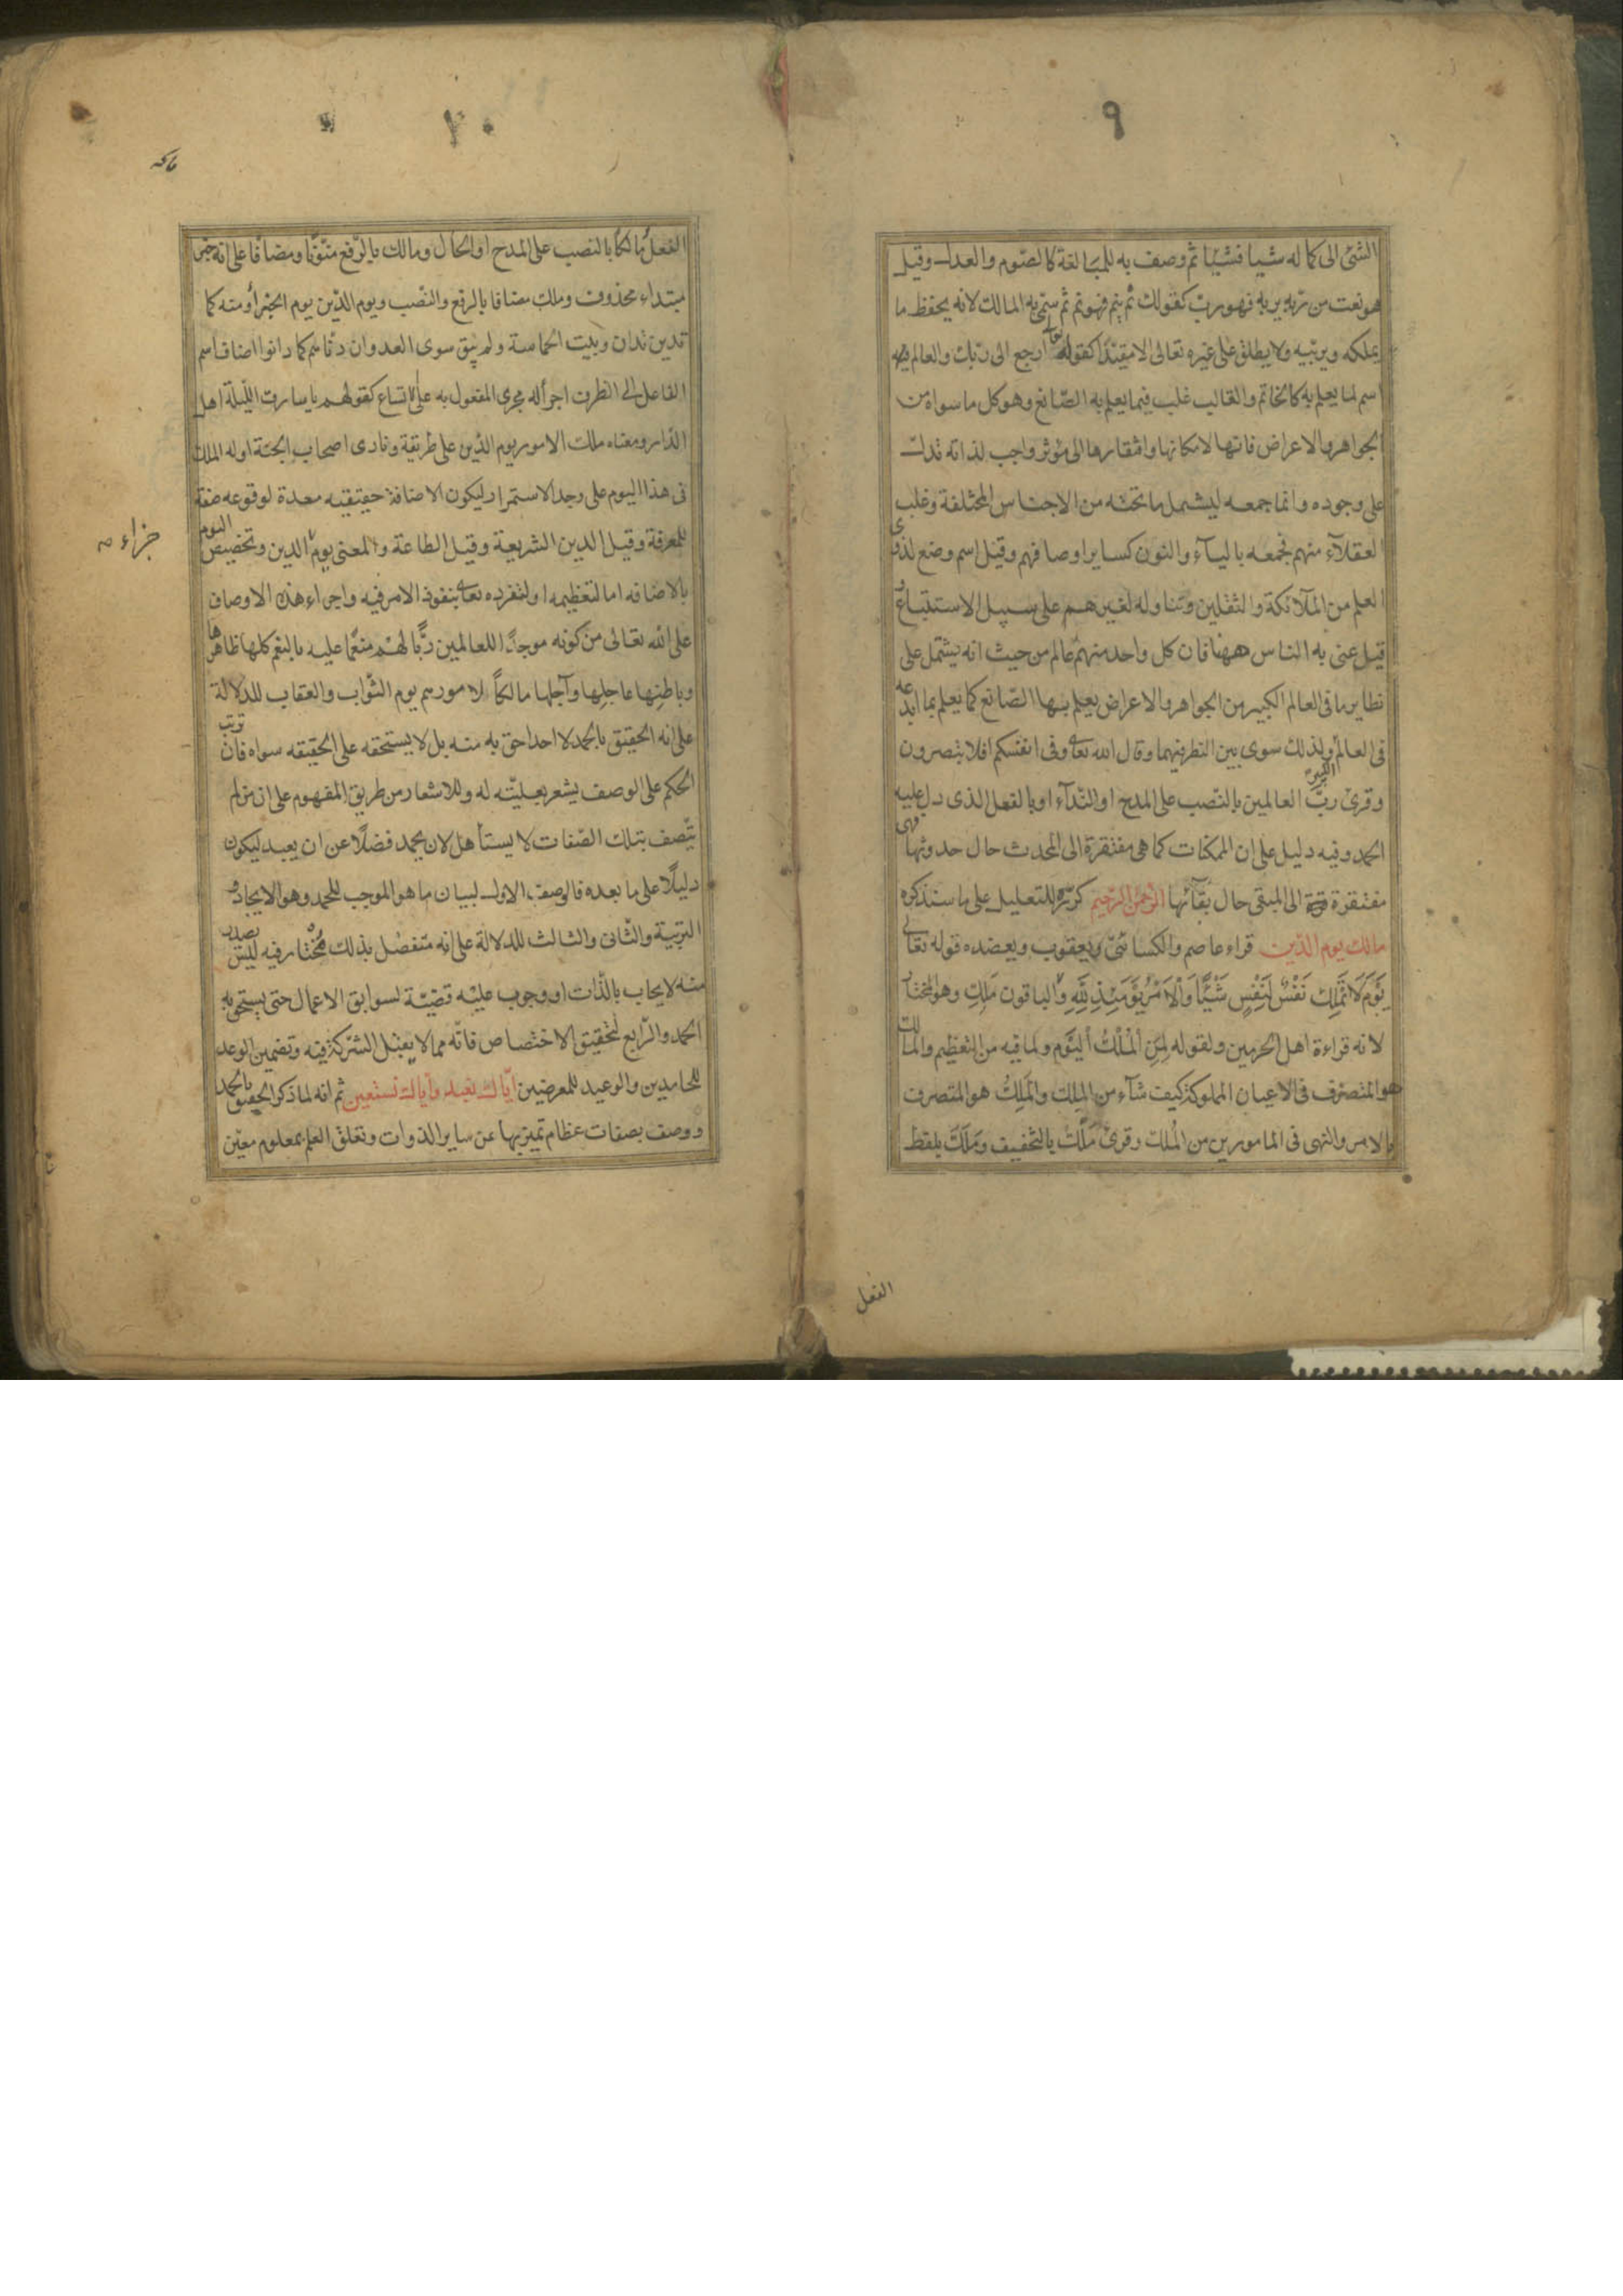 ٩
الشئ الى كماله شيا فشيا ثم وصف به للمبالغة كالصوم والعدل وقيل
هو نعت من ربه يربه فهو رب كقولك نم ينم فهو نم ثم سمى به المالك لانه يحفظ ما
يملكه ويربيه ولا يطلق على غيره تعالى الا مقيدا كقوله تعا ارجع الى ربك والعالم
اسم لما يعلم به كالخاتم والقالب غلب فيما يعلم به الصانع وهو كل ما سواه من
الجواهر والاعراض فانها لامكانها وافتقارها الى مؤثر واجب لذاته تدل
على وجوده وانما جمعه ليشمل ما تحته من الاجناس المختلفة وغلب
العقلاء منهم فجمعه بالياء والنون كساير اوصافهم وقيل اسم وضع لذوى
العلم من الملائكة والثقلين وتناوله لغيرهم على سبيل الاستتباع و
قيل عنى به الناس ههنا فان كل واحد منهم عالم من حيث انه يشتمل على
نظاير ما فى العالم الكبير من الجواهر والاعراض يعلم بها الصانع كما يعلم بما ابدعه
فى العالم الكبير ولذلك سوى بين النظر فيهما وقال الله تعا وفى انفسكم افلا تبصرون
وقرئ رب العالمين بالنصب على المدح او النداء او بالفعل الذى دل عليه
الحمد وفيه دليل على ان الممكنات كما هى مفتقرة الى المحدث حال حدوثها فهى
مفتقرة الى المبقى حال بقائها الرحمن الرحيم كرره للتعليل على ما سنذكره
مالك يوم الدين قراء عاصم والكسائى ويعقوب ويعضده قوله تعالى
يَوْمَ لَا تَمْلِكُ نَفْسٌ لِنَفْسٍ شَيْئًا وَالْاَمْرُ يَوْمَئِذٍ لِلَّهِ والباقون مَلِكِ وهو المختار
لانه قراءة اهل الحرمين ولقوله لِمَنِ الْمُلْكُ الْيَوْمَ ولما فيه من التعظيم والمالك
هو المتصرف فى الاعيان المملوكة كيف شاء من المِلك والمَلِكُ هو المتصرف
بالامر والنهى فى المامورين من المُلك وقرئ مَلْك بالتخفيف وَمَلَكَ بلفظ
الفعل
الفعل مالكا بالنصب على المدح او الحال ومالك بالرفع منونا ومضافا على انه خبر
مبتداء محذوف وملك مضافا بالرفع والنصب ويوم الدين يوم الجزا ومنه كما
تدين تدان وبيت الحماسة ولم يبق سوى العدوان دناهم كما دانوا اضاف اسم
الفاعل الى الظرف اجراله مجرى المفعول به على الاتساع كقولهم يا سارق الليلة اهل
الدار ومعناه ملك الامور يوم الدين على طريقة ونادى اصحاب الجنة اوله الملك
فى هذا اليوم على وجه الاستمرار ليكون الاضافة حقيقيه معدة لوقوعه صفة
للمعرفة وقيل الدين الشريعة وقيل الطاعة والمعنى يوم الدين وتخصيص اليوم
جزاء
بالاضافه اما لتعظيمه او لتفرده تعا بنفوذ الامر فيه واجراء هذه الاوصاف
على الله تعالى من كونه موجدا للعالمين ربًّا لهم منعما عليه بالنعم كلها ظاهرها
وباطنها عاجلها وآجلها مالكًا لامورهم يوم الثواب والعقاب للدلالة
على انه الحقيق بالحمد لا احد احق به منه بل لا يستحقه على الحقيقه سواه فان ترتب
الحكم على الوصف يشعر بعليته له وللاشعار من طريق المفهوم على ان من لم
يتصف بتلك الصفات لا يستأهل لان يحمد فضلًا عن ان يعبد ليكون
دليلًا على ما بعده فالوصف الاول لبيان ما هو الموجب للحمد وهو الايجاد و
التربية والثانى والثالث للدلالة على انه متفضل بذلك مختار فيه ليس يصدر
منه لايجاب بالذات او وجوب عليه قضية لسوابق الاعمال حتى يستحق به
الحمد والرابع لتحقيق الاختصاص فانه مما لا يقبل الشركة فيه وتضمين الوعد
للحامدين والوعيد للمعرضين اياك نعبد واياك نستعين ثم انه لما ذكر الحقيق بالحمد
ووصف بصفات عظام تميز بها عن ساير الذوات وتعلق العلم بمعلوم معين